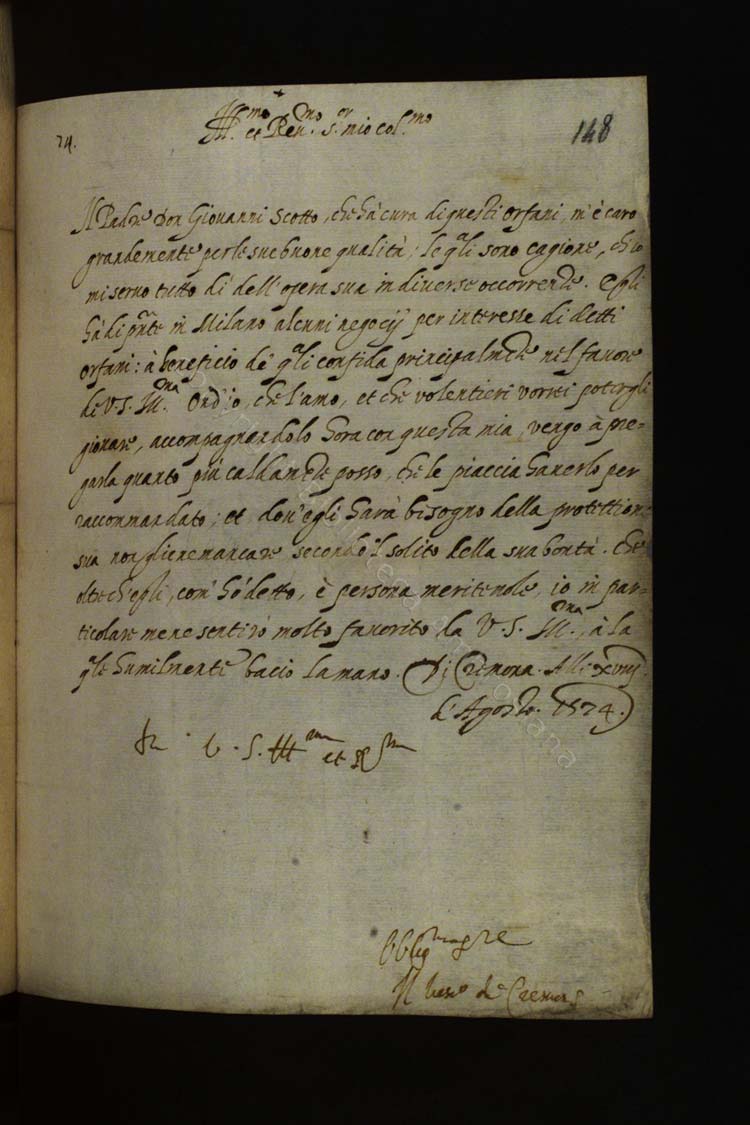 +
Ill.mo et Rev.mo S.or mio col.mo
74.
148
Il Padre Don Giovanni Scotto, che hà cura di questi orfani, m'è caro
grandemente per le sue buone qualità; le q.ali sono cagione, ch'io
mi servo tutto dì dell'opera sua in diverse occorrenze. Egli
hà di p.nte in Milano alcuni negocij per interesse di detti
orfani: à beneficio de' q.ali confida principalm.te nel favore
di V. S. Ill.ma Ond'io, che l'amo, et che volentieri vorrei potergli
giovare, accompagnandolo hora con questa mia, vengo à pre=
garla quanto più caldam.te posso, che le piaccia haverlo per
raccommandato; et dov'egli harà bisogno della protettione
sua non gliene mancare secondo 'l solito della sua bontà. Che
oltre ch'egli, com' hò detto, è persona meritevole, io in par=
ticolare me ne sentirò molto favorito da V. S. Ill.ma, à la
q.le humilmente bacio la mano. Di Cremona. Alli xviiij
d'Agosto. 1574.
Di V. S. Ill.ma et R.ma
Il vesc.o di Cremona